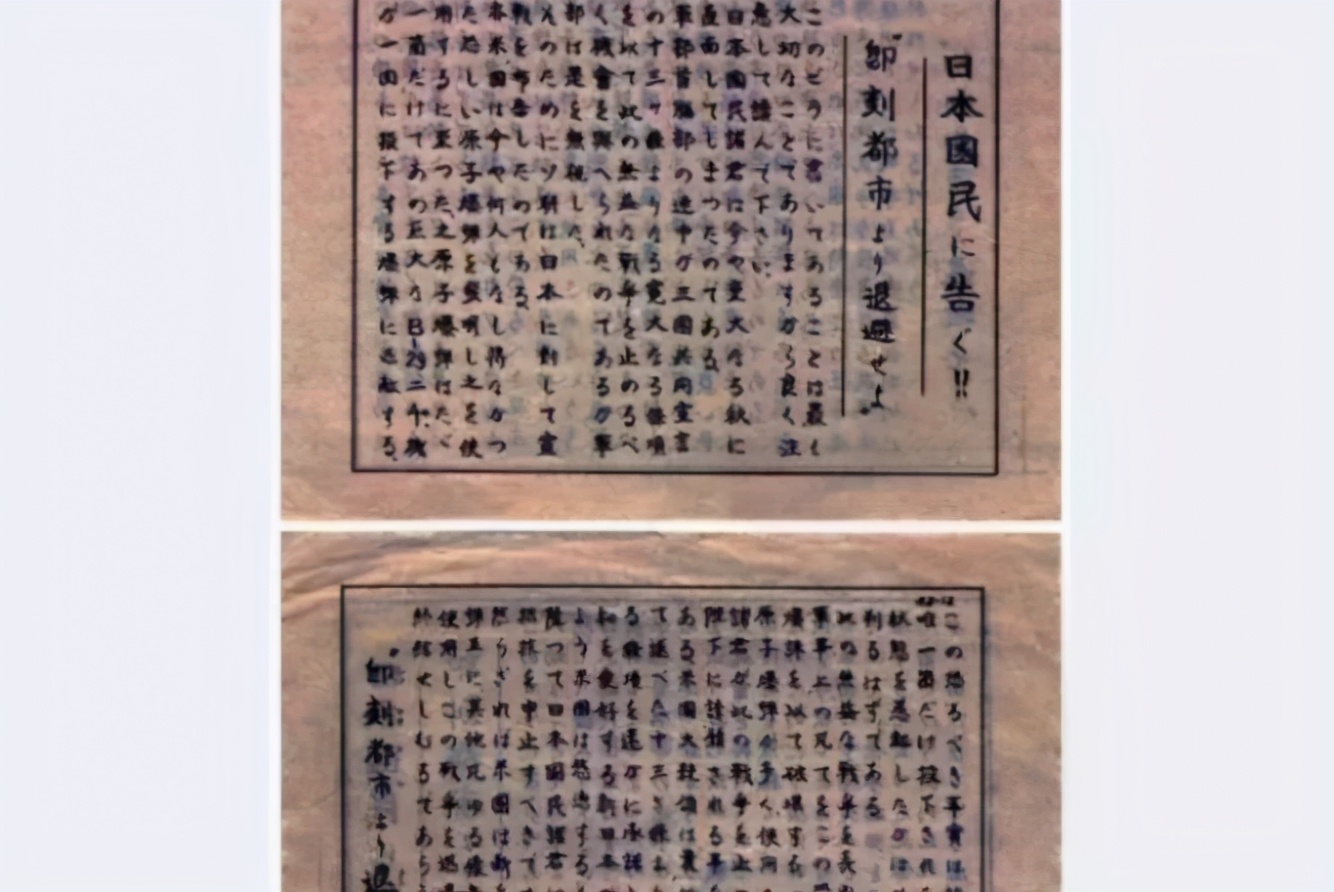 日本國民に告ぐ!!
"即刻都市より退避せよ"
このびらに書いてあることは最も
大切なことでありますから良く注
意して讀んで下さい。
日本國民諸君は今や重大なる秋に
直面してしまつたのである
軍部首腦部の連中が三國共同宣言
の十三ヶ條よりなる寛大なる條項
を以て此の無益な戰爭を止めるべ
く機會を與へられたのであるが軍
部は是を無視した
そのためにソ聯は日本に對して宣
戰を布告したのである
亦米國は今や何人もなし得なかつ
た恐しい原子爆彈を發明し之を使
用するに至つた、之原子爆彈はたゞ
一箇だけであの巨大なB-29二千機
が一回に投下する爆彈に匹敵する
この恐るべき事實は
唯一箇だけ投下され
状態を惹起したかは
判るはずである
此の無益な戰爭を長
軍事上の凡てをこの
爆彈を以て破壞する
原子爆彈が多く使用
諸君が此の戰爭を止
陛下に請願される事
ある米國大統領は曩
て述べた十三ヶ條よ
る條項を速かに承諾
和を愛好する新日本
よう米國は慫慂する
て日本國民諸君は
抵抗を中止すべきで
然らざれば米國は斷
彈並に其他凡ゆる優
使用しこの戰爭を迅
終結せしむるであら
"即刻都市より退